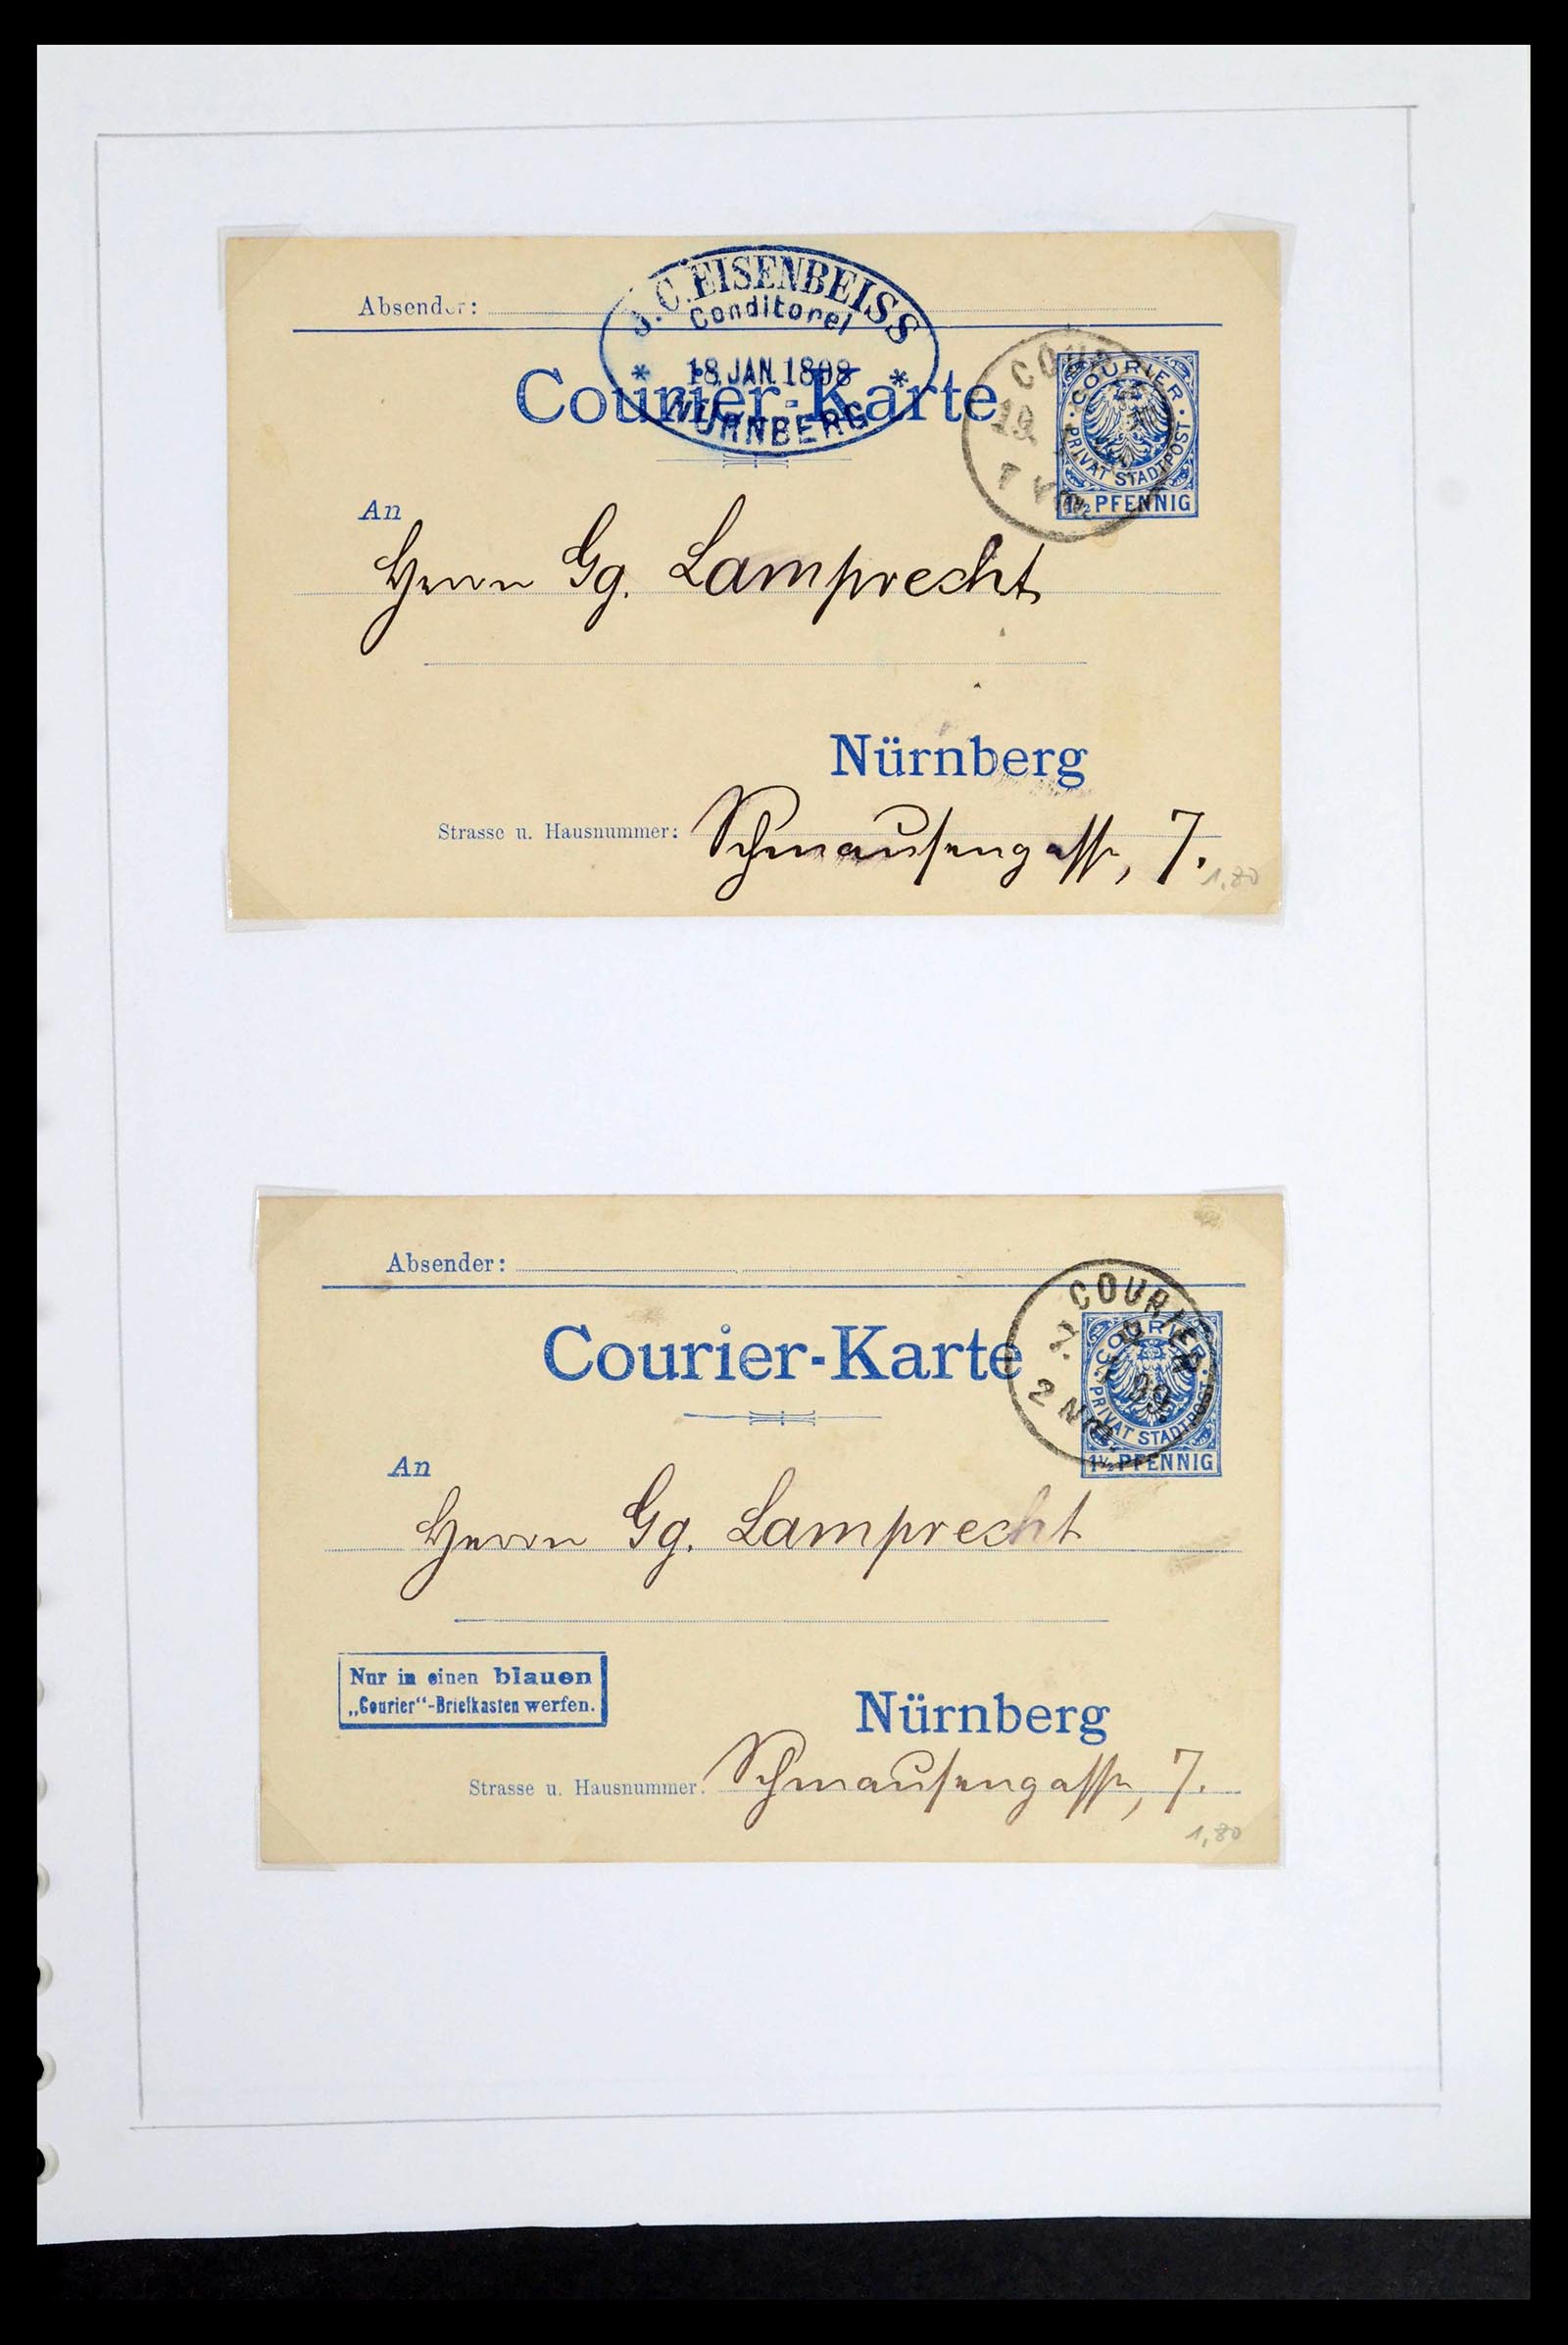 Absender:
J. C. EISENBEISS
Conditorei
* 18. JAN. 1898 *
NÜRNBERG
Courier-Karte
COUR
19.
7 V
· COURIER ·
PRIVAT STADTPOST
1½ PFENNIG
An
Herrn Gg. Lamprecht
Nürnberg
Strasse u. Hausnummer: Schmausengasse, 7.
1,80
Absender:
Courier-Karte
COURIER
7.
99
2 NM.
· COURIER ·
PRIVAT STADTPOST
1½ PFENNIG
An
Herrn Gg. Lamprecht
Nur in einen blauen
„Courier“-Briefkasten werfen.
Nürnberg
Strasse u. Hausnummer: Schmausengasse, 7.
1,80